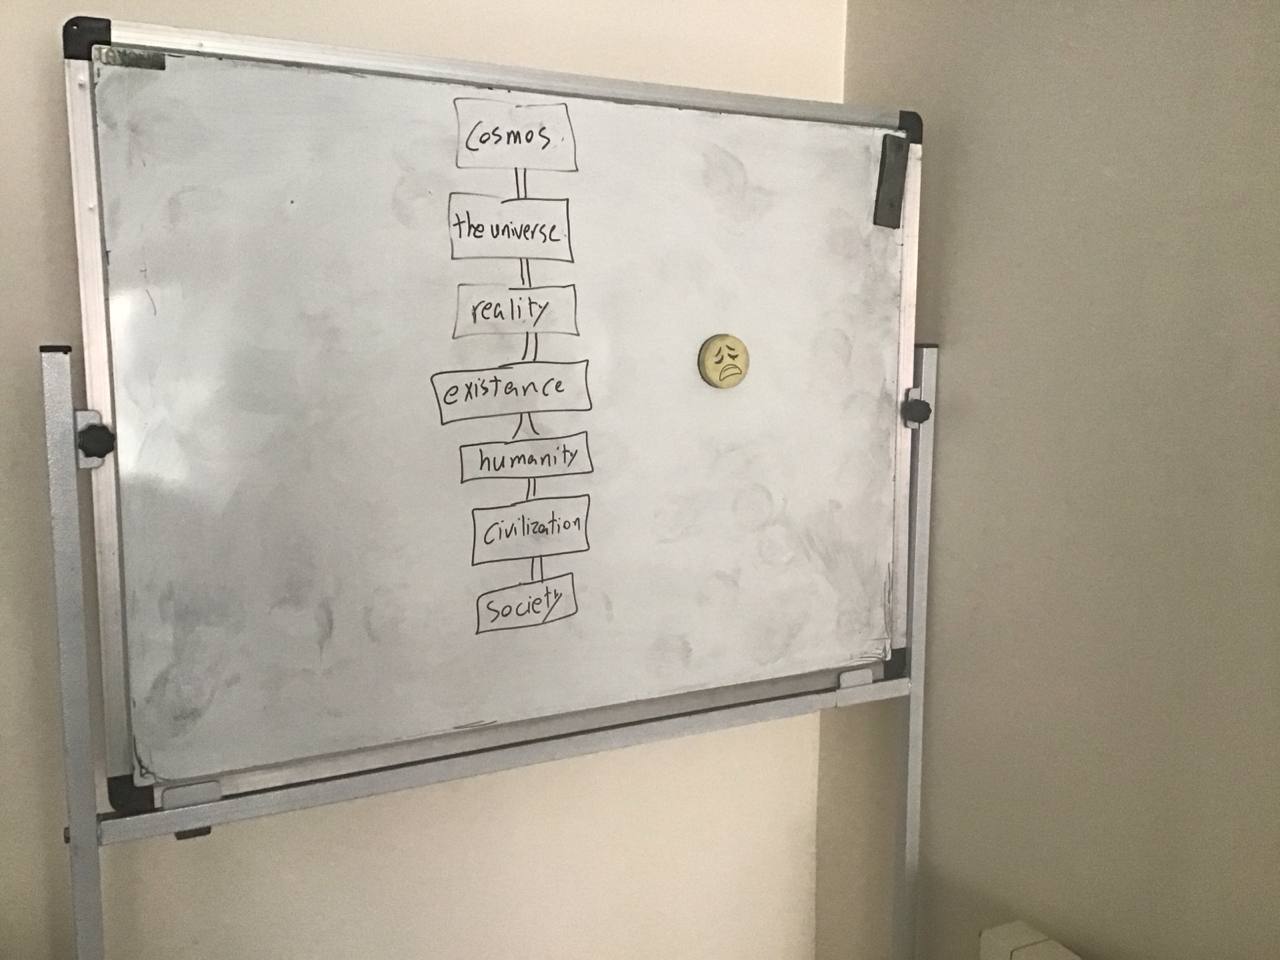 Cosmos.
the universe.
reality
existance
humanity
Civilization
Society